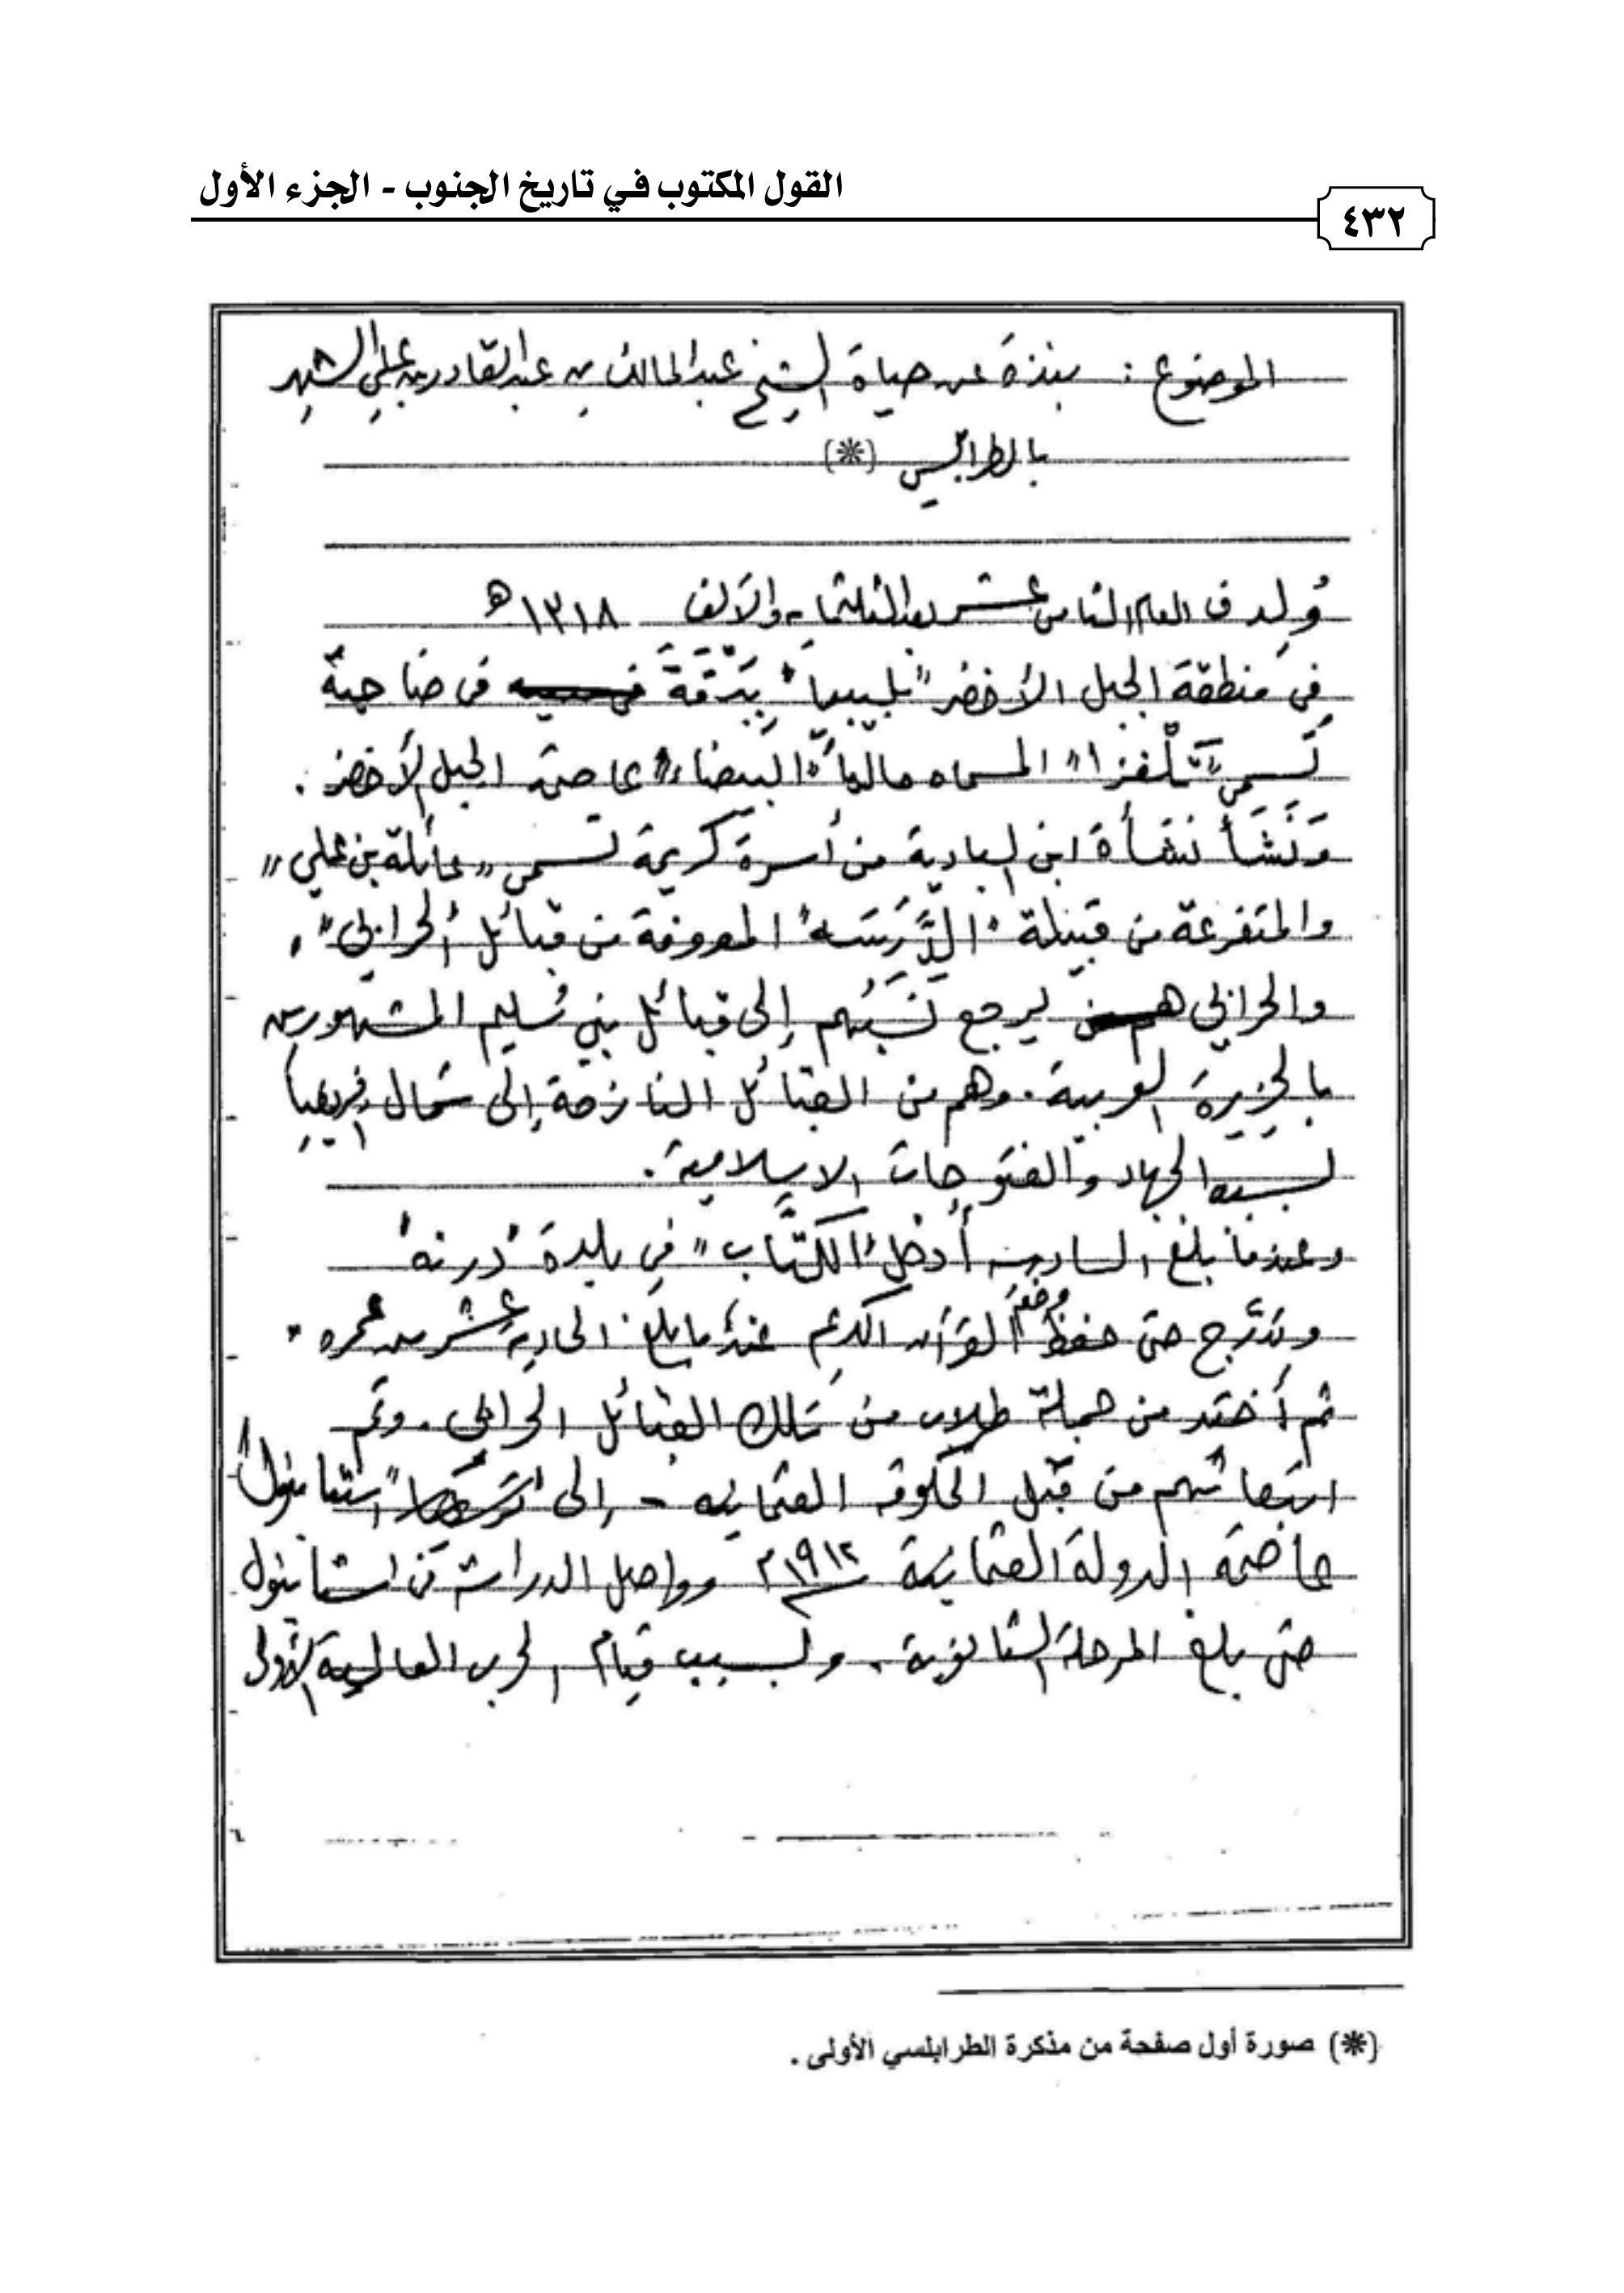 القول المكتوب في تاريخ الجنوب - الجزء الأول
٤٣٢
الموضوع : نبذة عن حياة الشيخ عبدالمالك بن عبدالقادر بن علي الشهير
بالطرابلسي (*)
وُلِد في العام الثامن عشر بعد الثلثمائة والألف ١٣١٨ هـ
في منطقة الجبل الأخضر "بليبيا" بَبَرْقَة في ضاحية
تسمى "تَلْغزا" المسماه حالياً "البيضاء" عاصمة الجبل الأخضر .
وَنَشَأ نَشأة ابن البادية من أسرة كريمة تسمى "عائلة بن علي"
والمتفرعة من قبيلة "الدَّرَسَه" المعروفة من قبائل "الحرابي" ،
والحرابي يرجع نَسَبُهم إلى قبائل بني سُليم المشهورين
بالجزيرة العربية . وهم من القبائل النازحة إلى شمال إفريقيا
بسبب الجهاد والفتوحات الاسلامية .
وعندما بلغ السادسة أُدخل "الكُتَّاب" في بلدة "درنه"
وتدرَّج حتى حفظ القرآن الكريم عندما بلغ الحادية عشر من عمره .
ثم أُختير من جملة طلاب من تلك القبائل الحرابي . وتم
ابتعاثهم من قبل الحكومة العثمانية - إلى "استانبول"
عاصمة الدولة العثمانية ١٩١٢م وواصل الدراسة في استانبول
حتى بلغ المرحلة الثانوية . ولسبب قيام الحرب العالمية الأولى
(*) صورة أول صفحة من مذكرة الطرابلسي الأولى .